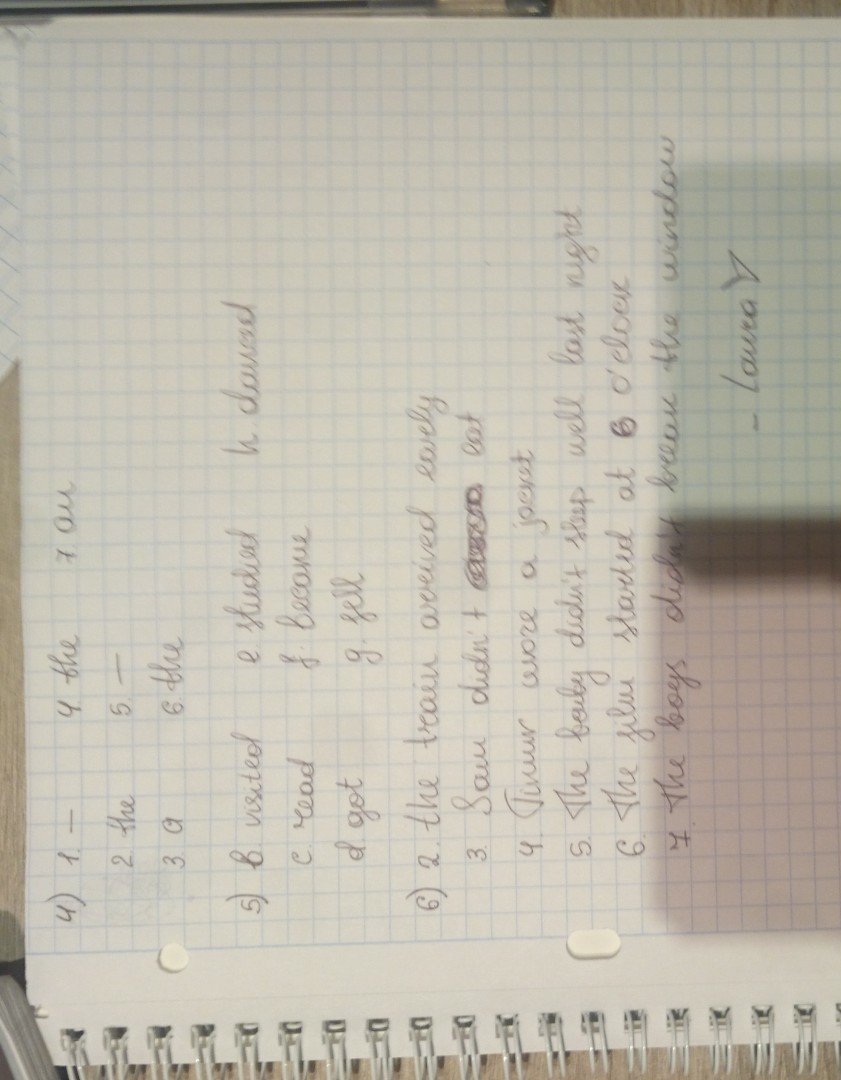 4) 1. — 4 the 7 an
2 the 5. —
3. a 6. the
5) b. visited e studied h danced
c. read f. became
d. got g. fell
6) 2. the train arrived early
3. Sam didn't eat
4. Timur wore a jacket
5. The baby didn't sleep well last night
6. The film started at 6 o'clock
7. The boys didn't break the window
- Laura ♡